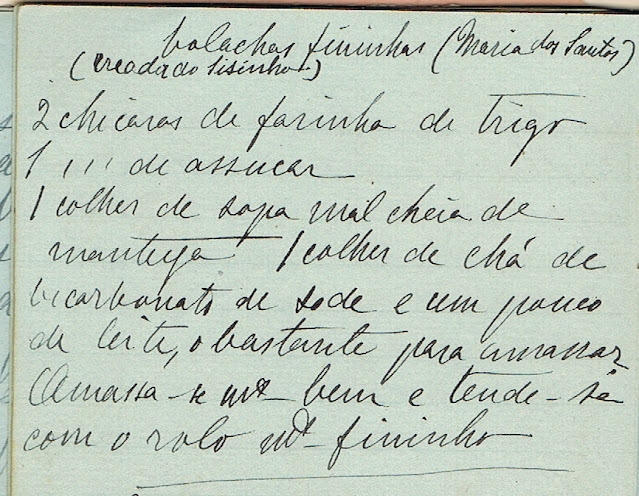 bolachas fininhas (Maria dos Santos)
(creada do Sisinho)
2 chicaras de farinha de trigo
1 ,,, de assucar
1 colher de sopa mal cheia de
manteiga 1 colher de chá de
bicarbonato de sode e um pouco
de leite, o bastante para amassar
Amassa-se mto bem e tende-se
com o rolo mto fininho